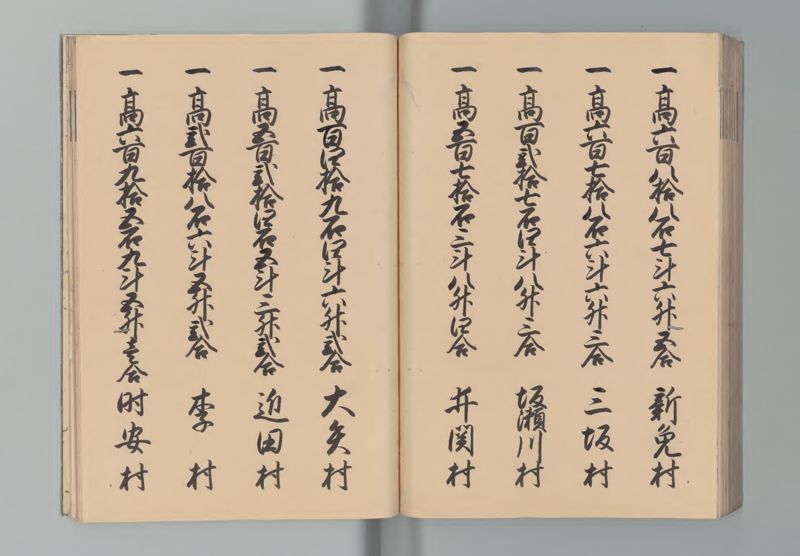 一高六百八拾八石七斗六升五合 新免村
一高六百七拾八石六斗六升三合 三坂村
一高百弐拾七石四斗八升三合 坂瀬川村
一高五百七拾石三斗八升四合 井関村
一高百四拾九石四斗六升弐合 大矢村
一高五百弐拾四石五斗三升弐合 迫田村
一高弐百拾八石六斗五升弐合 李村
一高六百九拾五石九斗五升壱合 時安村